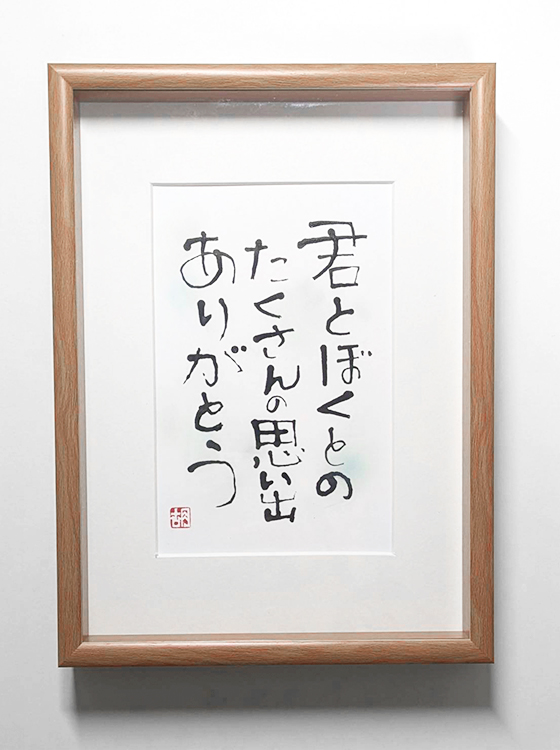 君とぼくとの
たくさんの思い出
ありがとう